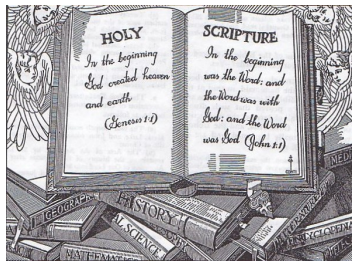 HOLY
In the beginning
God created heaven
and earth
(Genesis 1:1)
SCRIPTURE
In the beginning
was the Word: and
the Word was with
God: and the Word
was God (John 1:1)
GEOGRAPHY
HISTORY
AL SCIENCE
MATHEMATIC